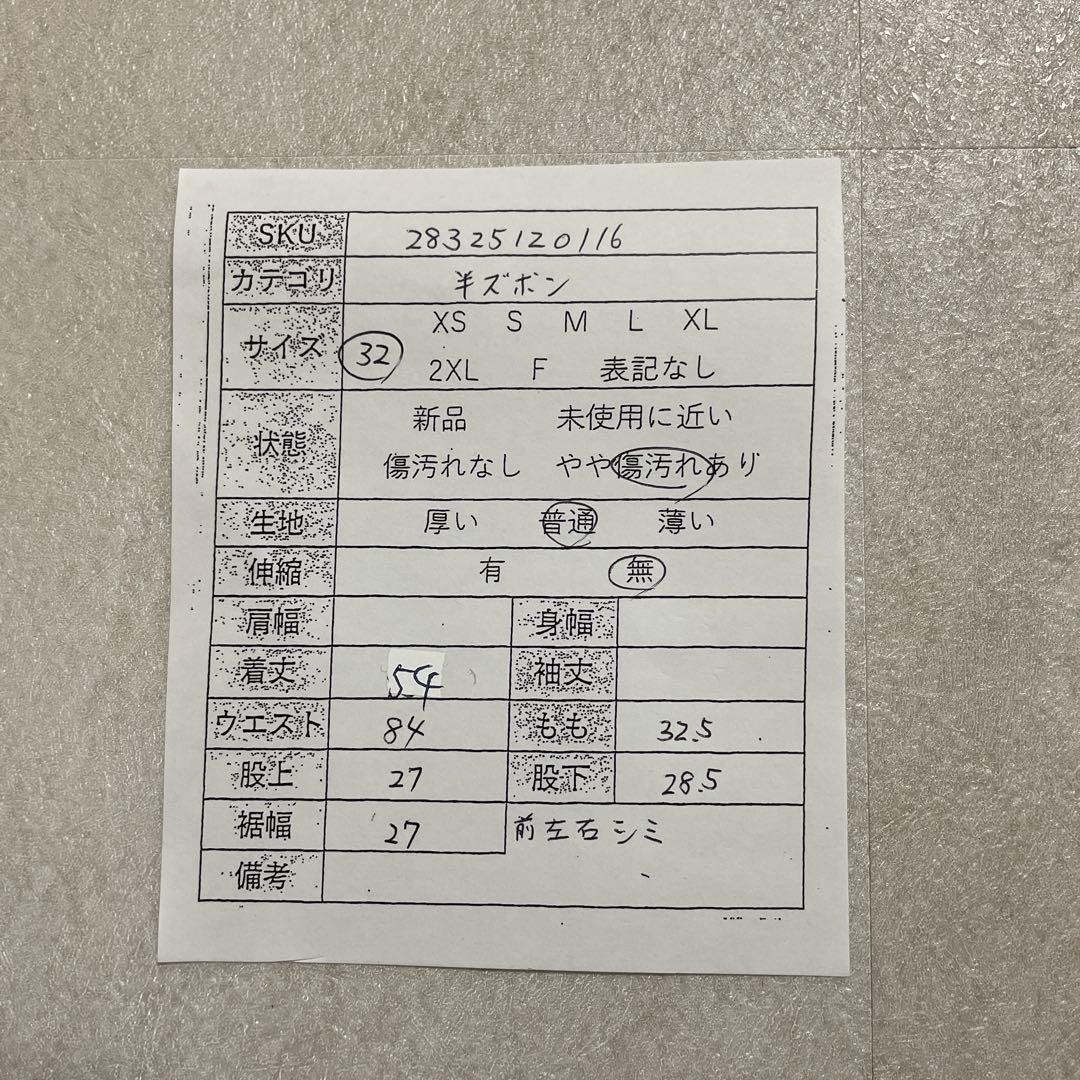 SKU 28325120116
カテゴリ 半ズボン
サイズ 32 XS S M L XL
2XL F 表記なし
状態 新品 未使用に近い
傷汚れなし やや傷汚れあり
生地 厚い 普通 薄い
伸縮 有 無
肩幅 身幅
着丈 54 袖丈
ウエスト 84 もも 32.5
股上 27 股下 28.5
裾幅 27 前左右シミ
備考